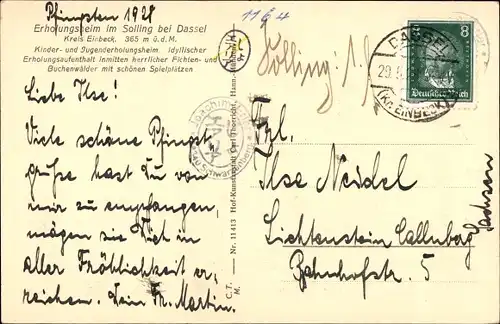 Pfingsten 1928
1164
Erholungsheim im Solling bei Dassel
Kreis Einbeck. 365 m ü.d.M.
Kinder- und Jugenderholungsheim Idyllischer
Erholungsaufenthalt inmitten herrlicher Fichten- und
Buchenwälder mit schönen Spielplätzen
Liebe Ilse!
Viele schöne Pfingst-
grüße hast du von
mir zu empfangen,
mögen sie Dich in
aller Fröhlichkeit er-
reichen. Dein Fr. Martin.
C.T.
M.
Nr. 11413 Hof-Kunstanstalt Carl Thoericht, Hann.
Solling
8
Deutsches Reich
DASSEL
(Kr. EINBECK)
Frl.
Ilse Neidel
Lichtenstein Callnberg
Sachsen
Bahnhofstr. 5